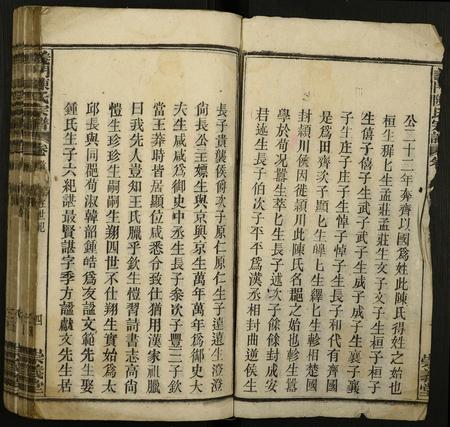 公二十二年奔齊以國爲姓此陳氏得姓之始也
桓生穉穉生孟莊孟莊生文子文子生桓子桓子
生僖子僖子生武子武子生成子成子生襄子襄
子生莊子莊子生悼子悼子生長子和代有齊國
是爲田齊次子
封潁川侯因徙潁川此陳氏名郡之始也軫生嚣
學於荀況嚣生莘莘生長子述次子餘餘封成安
君述生長子伯次子平平爲漢丞相封曲逆侯生
長子貴襲侯爵次子原仁原仁生子遠遠生澄澄
尙長公王嫖生與京與京生萬年萬年爲御史大
夫生咸咸爲御史中丞生長子泰次子豐三子欽
當王莽時皆居顯位咸悉令致仕猶用漢家祖臘
曰我先人豈知王氏臘乎欽生愷習詩書志高尙
愷生珍珍生嗣嗣生翔四世不仕翔生實始爲太
邱長與同郡荀淑韓韶鍾皓爲友諡文範先生娶
鍾氏生子六紀諶最賢諶字季方諡獻文先生居
義門陳氏宗譜
四